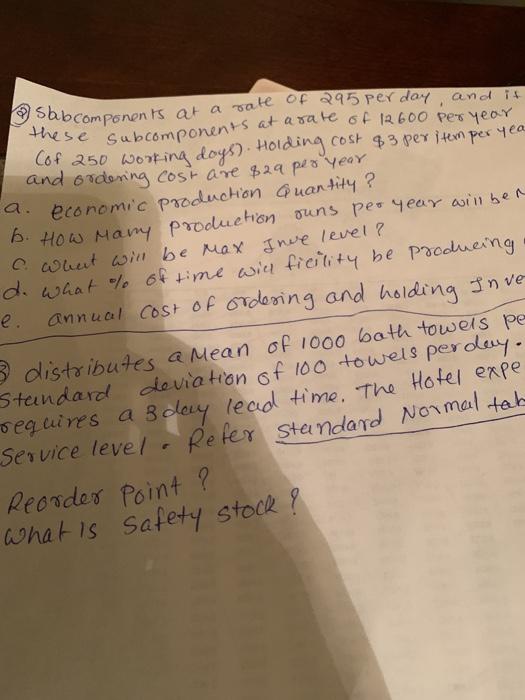 ② Subcomponents at a rate of 295 per day, and it
these subcomponents at a rate of 12600 per year
(of 250 working days). Holding cost $3 per item per yea
and ordering cost are $29 per year
a. economic production Quantity?
b. How Many production runs per year will be N
c. what will be Max Inve level?
d. what % of time will ficility be produeing
e. annual cost of ordering and holding Inve
③ distributes a Mean of 1000 bath towels pe
Standard deviation of 100 towels per day.
requires a 3 day lead time. The Hotel expe
Service level. Refer Standard Normal tab
Reorder Point?
what is safety stock?